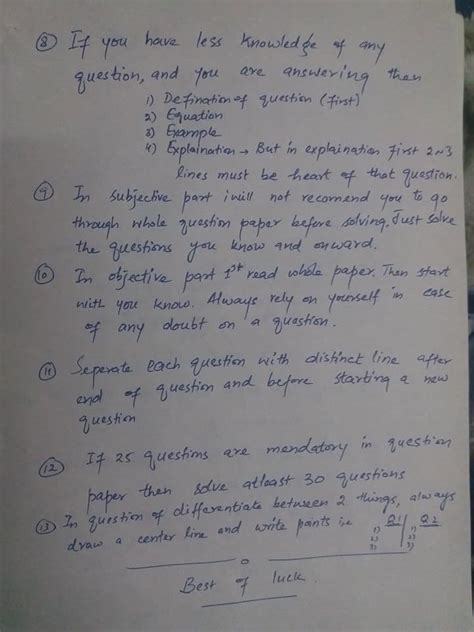 ⑧ If you have less knowledge of any
question, and you are answering then
1) Defination of question (first)
2) Equation
3) Example
4) Explaination → But in explaination first 2~3
lines must be heart of that question.
⑨ In subjective part i will not recomend you to go
through whole question paper before solving. Just solve
the questions you know and onward.
⑩ In objective part 1st read whole paper. Then start
with you know. Always rely on yourself in case
of any doubt on a question.
⑪ Seperate each question with distinct line after
end of question and before starting a new
question
⑫ If 25 questions are mendatory in question
paper then solve atleast 30 questions
⑬ In question of differentiate between 2 things, always
draw a center line and write points i.e Q1 | Q2
1) 1)
2) 2)
3) 3)
Best of luck.